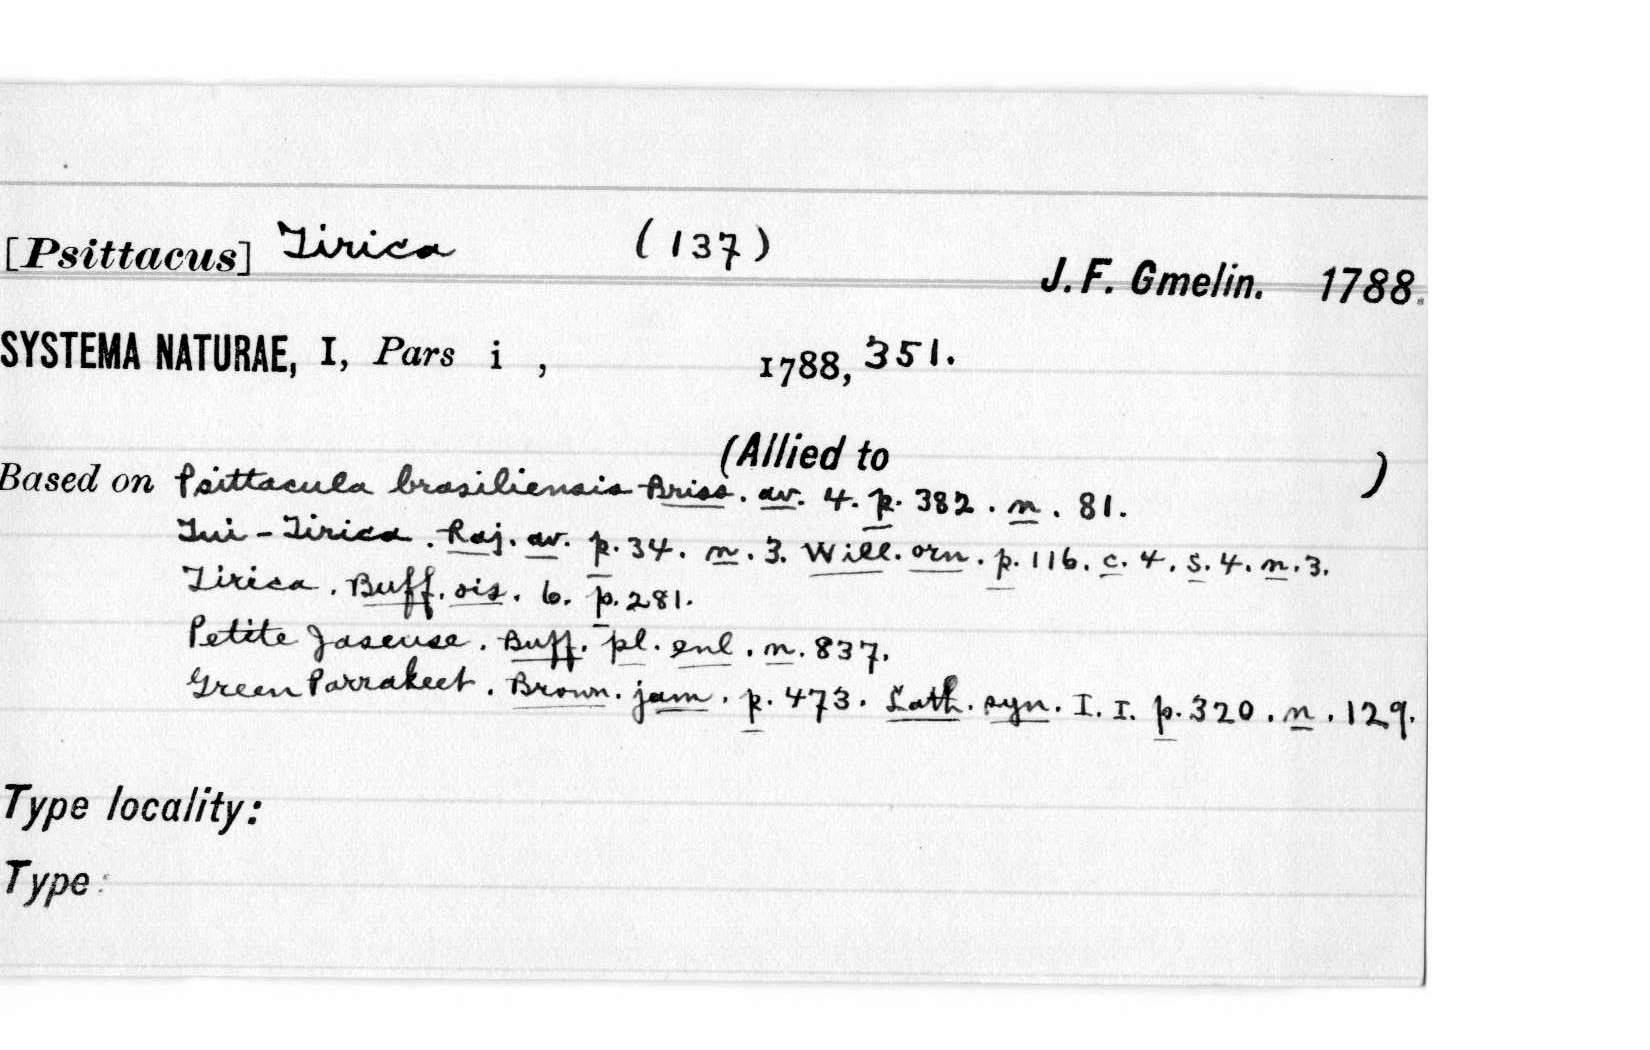 [Psittacus] Tirica (137)
J. F. Gmelin. 1788.
SYSTEMA NATURAE, I, Pars i , 1788, 351.
(Allied to )
Based on Psittacula brasiliensis Briss. av. 4. p. 382. n. 81.
Tui-Tirica. Raj. av. p. 34. n. 3. Will. orn. p. 116. c. 4. s. 4. n. 3.
Tirica. Buff. ois. 6. p. 281.
Petite Jaseuse. Buff. pl. enl. n. 837.
Green Parrakeet. Brown. jam. p. 473. Lath. syn. I. I. p. 320. n. 129.
Type locality:
Type: